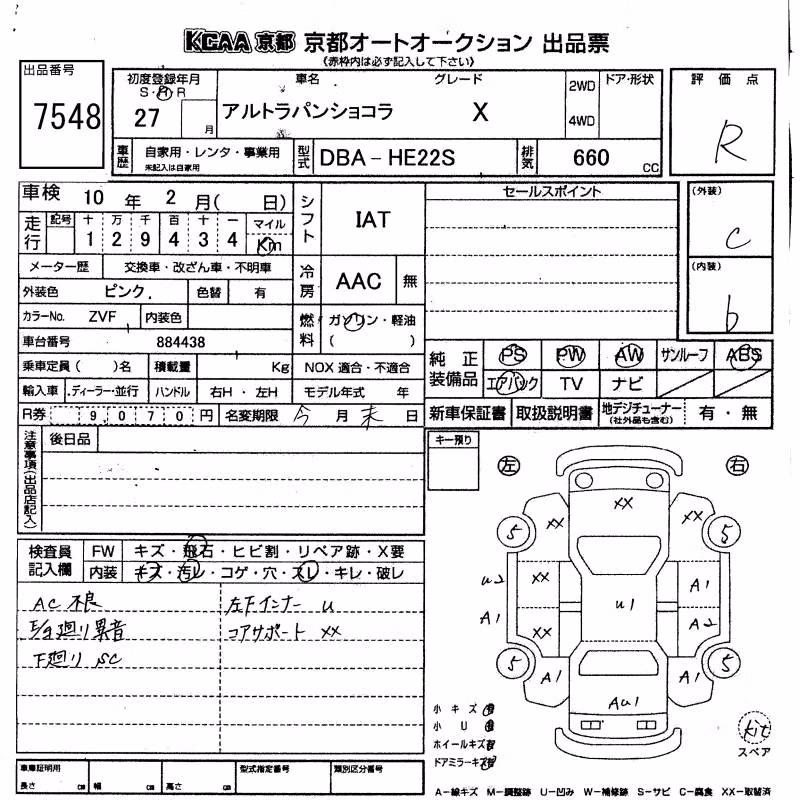 KCAA 京都 京都オートオークション 出品票
《赤枠内は必ず記入して下さい》
出品番号
7548
初度登録年月
S・H・R
27 月
車名
アルトラパンショコラ
グレード
X
2WD
4WD
ドア・形状
評価点
R
車歴
自家用・レンタ・事業用
未記入は自家用
型式
DBA-HE22S
排気
660 CC
車検 10 年 2 月( 日)
走行
記号 十 万 千 百 十 一 マイル
1 2 9 4 3 4 Km
メーター歴 交換車・改ざん車・不明車
外装色 ピンク. 色替 有
カラーNo. ZVF 内装色
車台番号 884438
乗車定員( )名 積載量 Kg
輸入車 ディーラー・並行 ハンドル 右H・左H
R券 9,070円 名変期限 今月末日
シフト
IAT
冷房
AAC 無
燃料
ガソリン・軽油
( )
NOX 適合・不適合
モデル年式 年
セールスポイント
(外装)
C
(内装)
b
純正装備品
PS PW AW サンルーフ ABS
エアバック TV ナビ
新車保証書 取扱説明書 地デジチューナー 有・無
(社外品も含む)
注意事項(出品店記入)
後日品
キー預り
左 右
検査員記入欄
FW キズ・飛石・ヒビ割・リペア跡・X要
内装 キズ・汚レ・コゲ・穴・スレ・キレ・破レ
AC 不良
E/g廻り異音
下廻り SC
左下インナー U
コアサポート XX
XX
XX XX
5 5
U2 XX A1
U1
A1 XX A2
5 5
A1 A1
AU1
小キズ有
小U有
ホイールキズ有
ドアミラーキズ有
kit
スペア
車庫証明用
長さ cm 幅 cm 高さ cm
型式指定番号
類別区分番号
A-線キズ M-調整跡 U-凹み W-補修跡 S-サビ C-腐食 XX-取替済